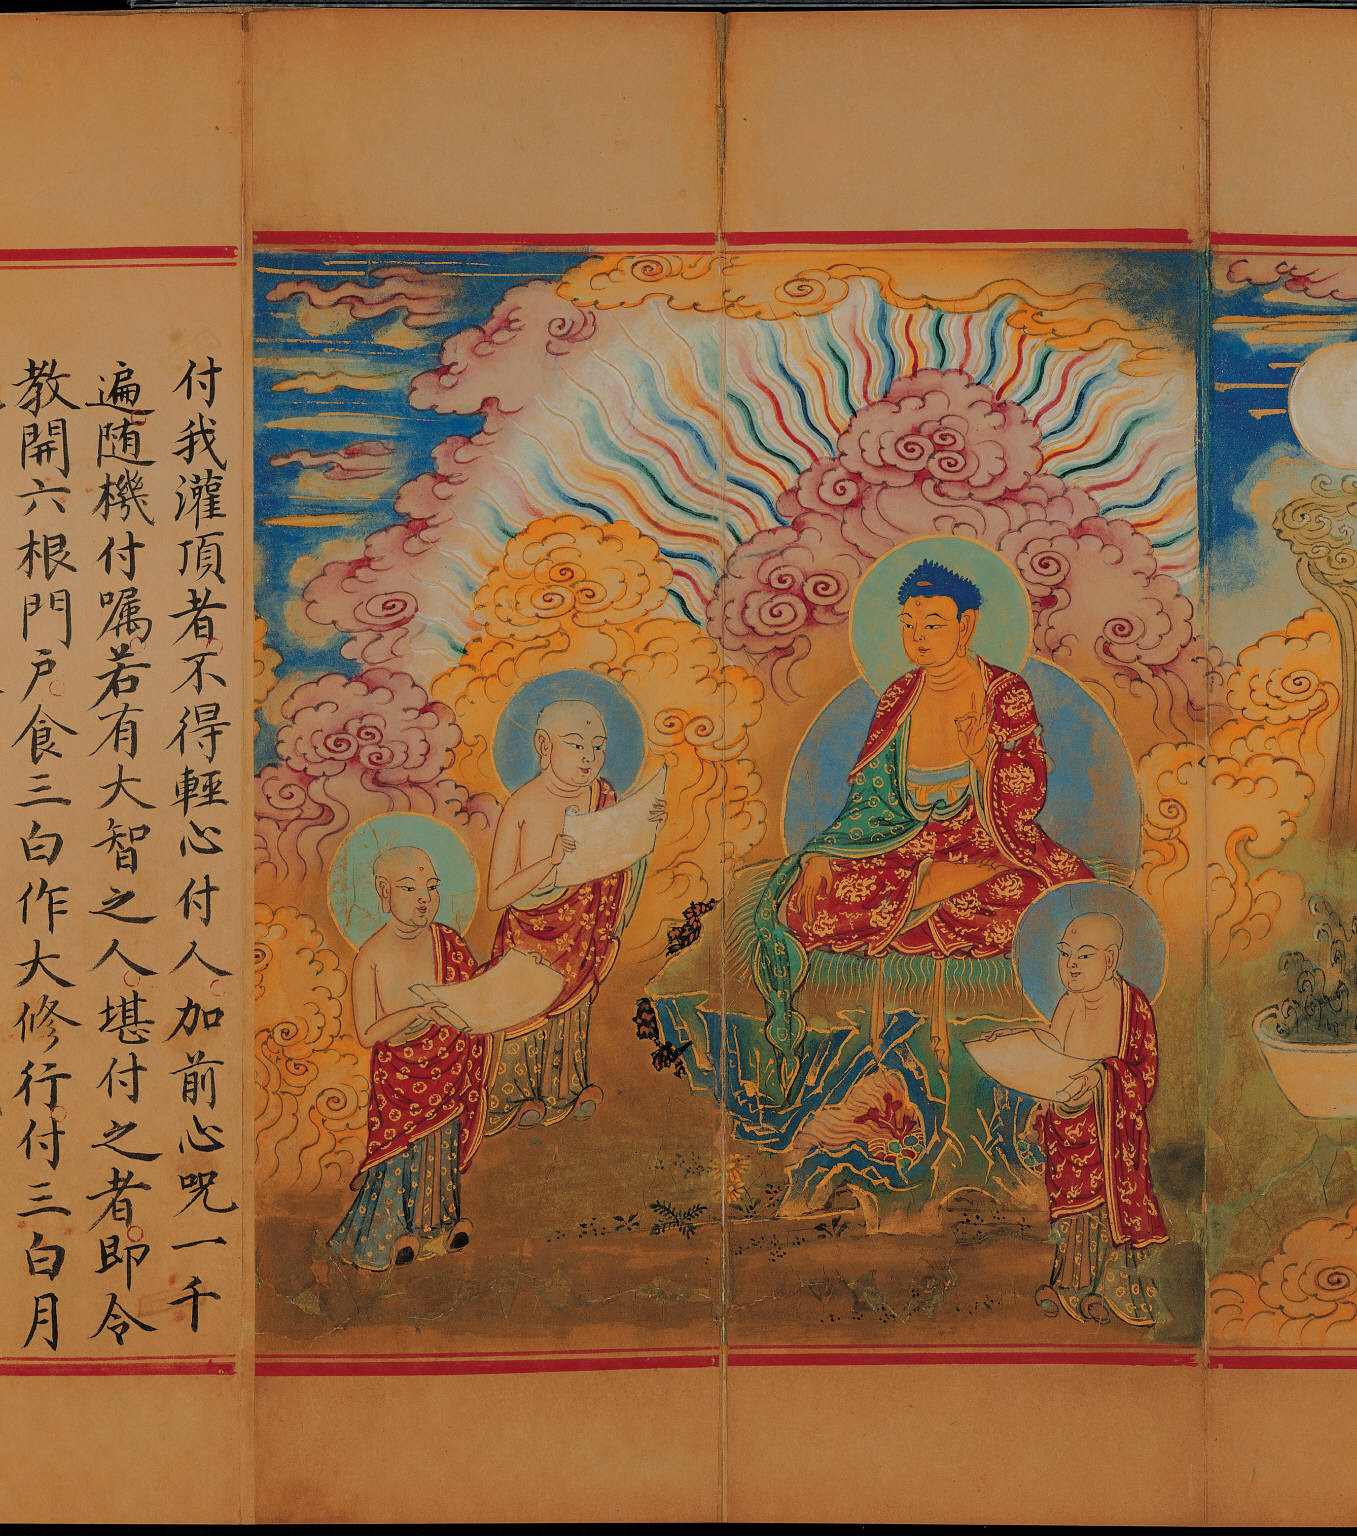 付我灌頂者不得輕心付人加前心呪一千
遍随機付嘱若有大智之人堪付之者即令
教開六根門戶食三白作大修行付三白月